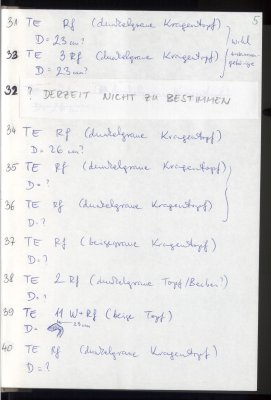 5
31 TE Rf (dunkelgraue Kragentopf)
D = 23 cm?
33 TE 3 Rf (dunkelgraue Kragentopf)
D = 23 cm?
wohl
32 ? DERZEIT NICHT ZU BESTIMMEN
34 TE Rf (dunkelgraue Kragentopf)
D = 26 cm?
35 TE Rf (dunkelgraue Kragentopf)
D = ?
36 TE Rf (dunkelgraue Kragentopf)
D. ?
37 TE Rf (beigegraue Kragentopf)
D. ?
38 TE 2 Rf (dunkelgraue Topf/Becher?)
D. ?
39 TE 11 W+Rf (beige Topf)
D= 29 cm
40 TE Rf (dunkelgraue Kragentopf)
D = ?